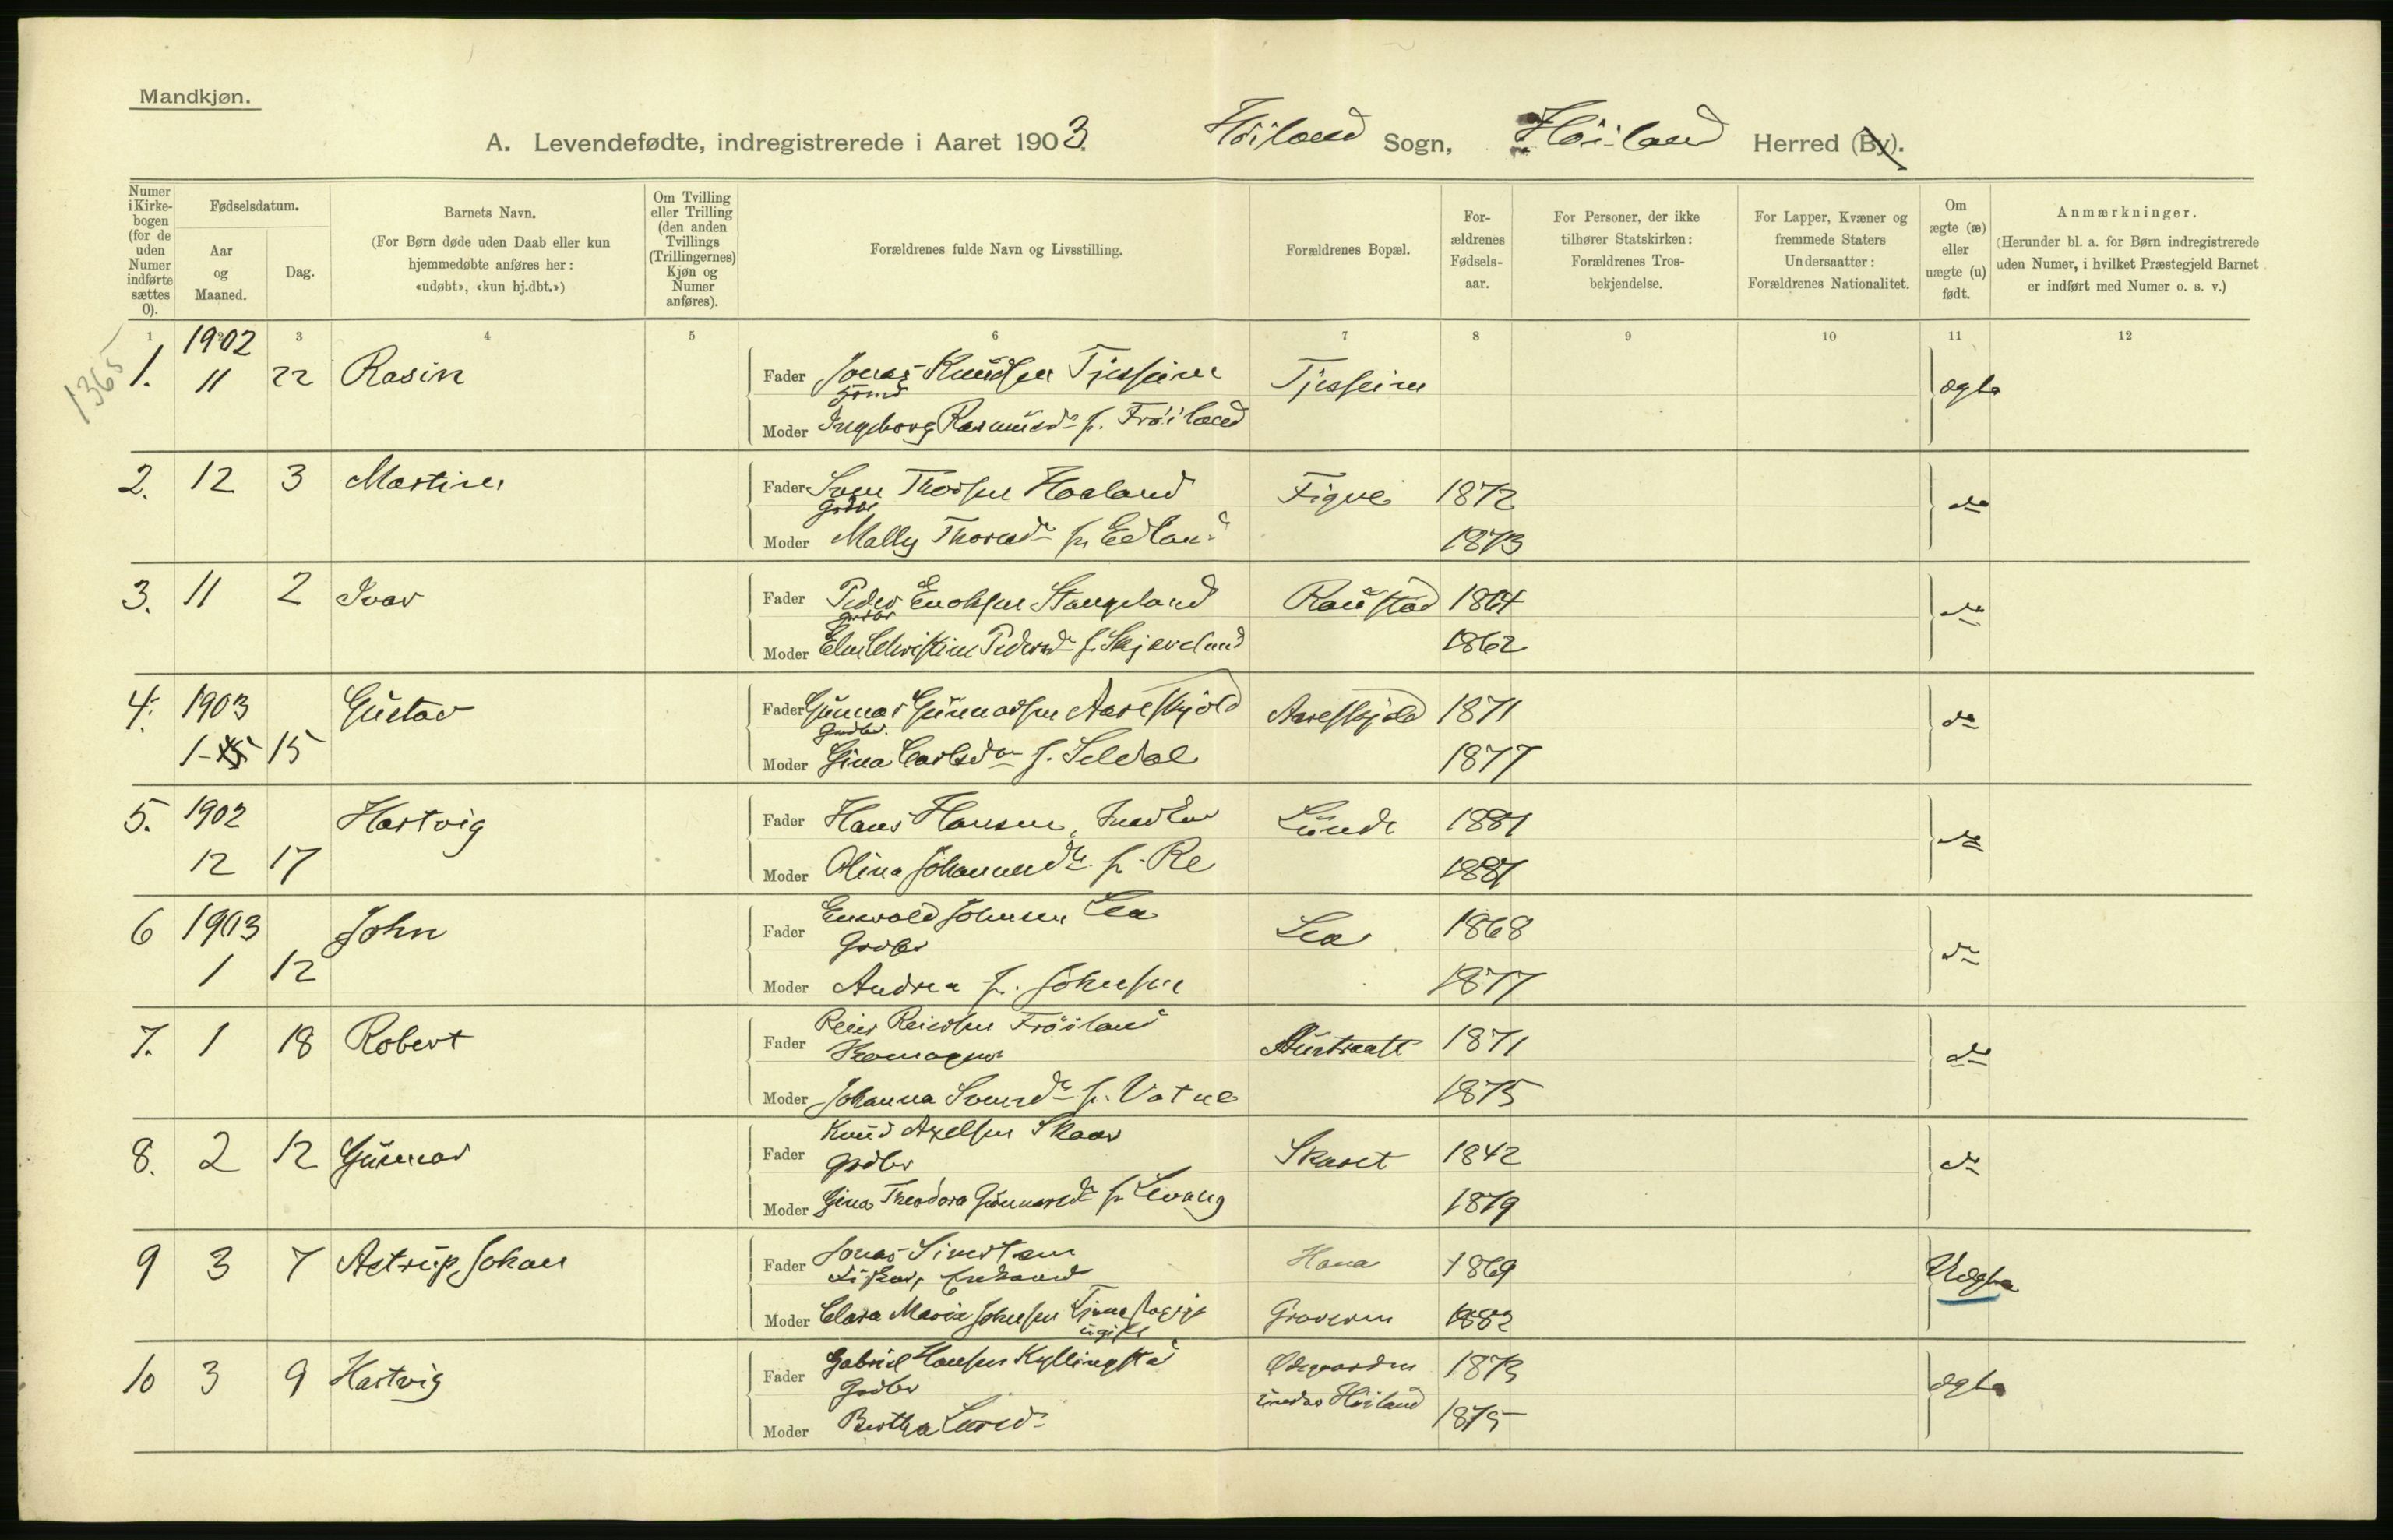 Mandkjøn.
A. Levendefødte, indregistrerede i Aaret 1903. Höiland Sogn, Höiland Herred (By).
Numer i Kirkebogen (for de uden Numer indførte sættes 0).
Fødselsdatum.
Aar og Maaned.
Dag.
Barnets Navn.
(For Børn døde uden Daab eller kun hjemmedøbte anføres her: «udøbt», «kun hj.dbt.»)
Om Tvilling eller Trilling (den anden Tvillings (Trillingernes) Kjøn og Numer anføres).
Forældrenes fulde Navn og Livsstilling.
Forældrenes Bopæl.
Forældrenes Fødselsaar.
For Personer, der ikke tilhører Statskirken: Forældrenes Trosbekjendelse.
For Lapper, Kvæner og fremmede Staters Undersaatter: Forældrenes Nationalitet.
Om ægte (æ) eller uægte (u) født.
Anmærkninger.
(Herunder bl. a. for Børn indregistrerede uden Numer, i hvilket Præstegjeld Barnet er indført med Numer o. s. v.)
1 2 3 4 5 6 7 8 9 10 11 12
1365
1902
1. 11 22 Rasin Fader Jonas Knudsen Tjessheim Tjessheim ægte
Moder Ingeborg Rasmusd. f. Fröiland
2. 12 3 Martin Fader Sven Thorsen Haaland Figve 1872 do
Grdbr
Moder Mally Thorsd. f. Edland 1873
3. 11 2 Ivar Fader Peder Enoksen Stangeland Raustad 1864 do
Grdbr
Moder Elen Christine Pedersd. f. Skjæveland 1862
4. 1903 Gustav Fader Gunnar Gunnarsen Aareskjold Aareskjold 1871 do
Grdbr.
1 - 15 15 Moder Gina Carlsd. f. Seldal 1877
5. 1902 Hartvig Fader Hans Hansen, Snedker Lunde 1881 do
12 17 Moder Olina Johannesd. f. Re 1881
6 1903 John Fader Enevold Johnsen Lea Lea 1868 do
Grdbr
1 12 Moder Andrea f. Johnsen 1877
7. 1 18 Robert Fader Reier Reiersen Fröiland Austraatt 1871 do
Skomager
Moder Johanna Svensd. f. Vatne 1875
8. 2 12 Gunnar Fader Knud Axelsen Skaar Skaret 1842 do
Grdbr
Moder Gina Theodora Gunnarsd. f. Levang 1879
9 3 7 Astrup Johan Fader Jonas Simonsen Hana 1869 Uægte
Fisker, Enkemand
Moder Clara Marie Johnsen Tjenestepige Graveren 1882
ugift
10 3 9 Hartvig Fader Gabriel Hansen Kyllingstad Ødegaarden 1873 ægte
Grdbr under Höiland
Moder Bertha Larsd. 1875